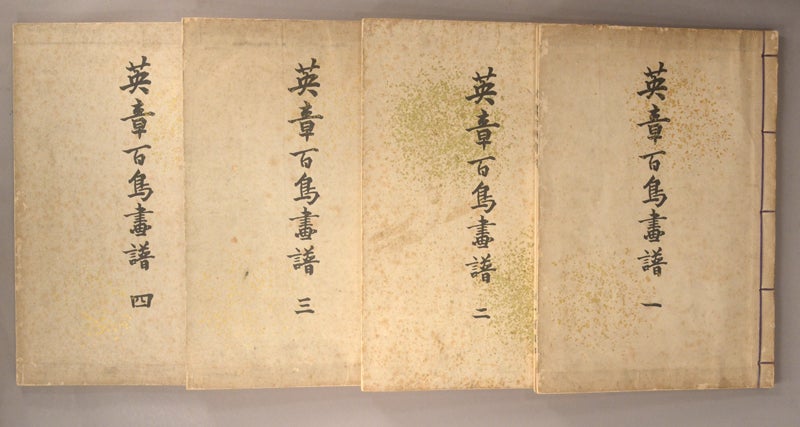 英章百鳥畫譜 一
英章百鳥畫譜 二
英章百鳥畫譜 三
英章百鳥畫譜 四